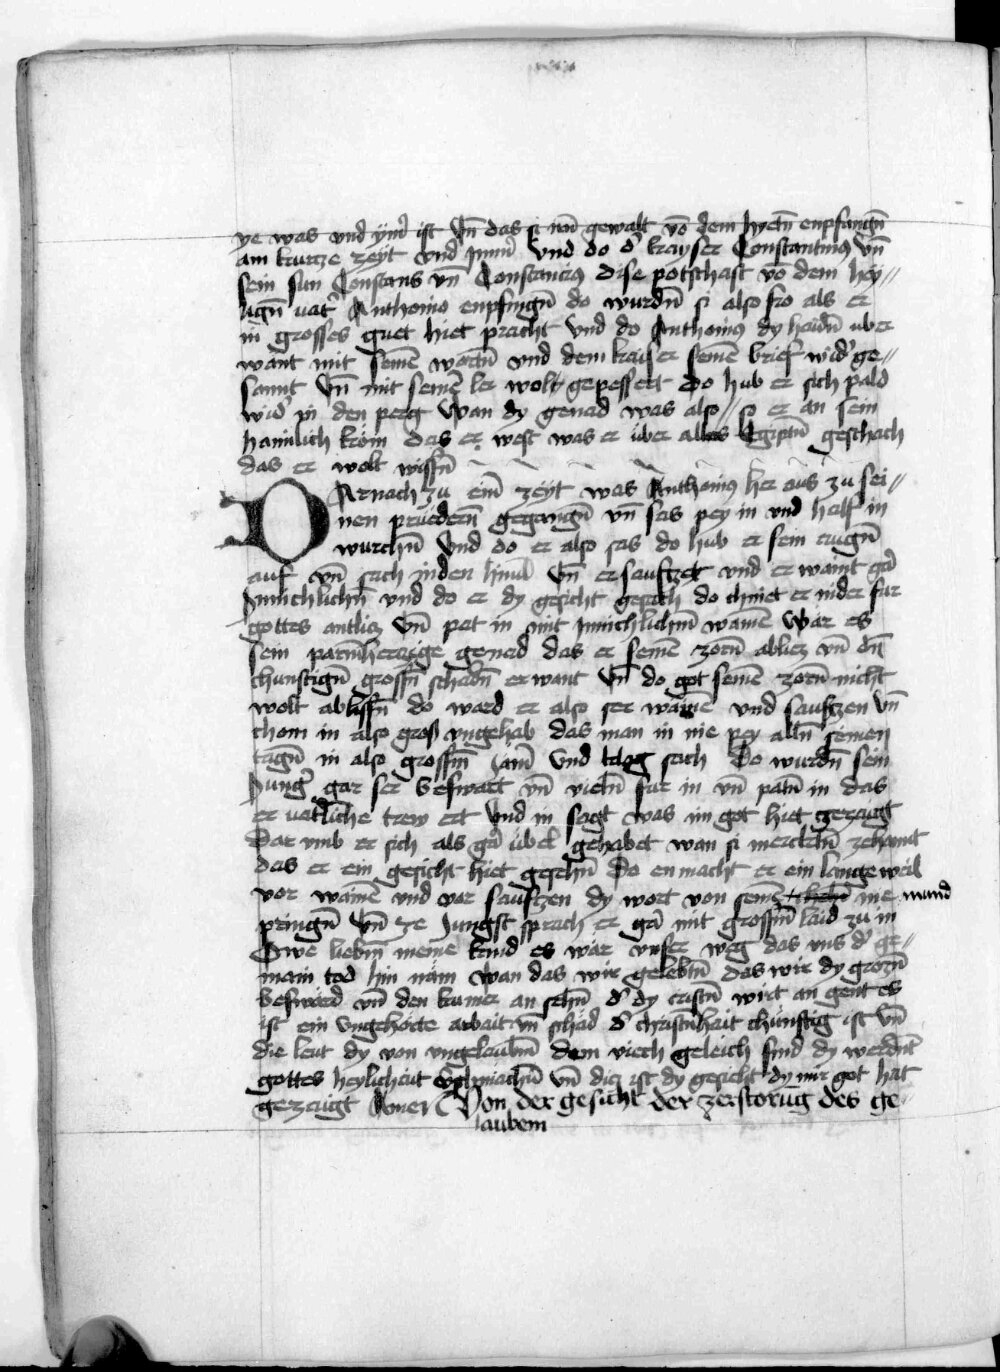 ye was und ym̄ ist Vn̄ das si nu̇n gewalt vō dem hyetn̄ enpfangn̄
am kurtze zeyt vnd Jmm̄ Vnd do dˀ kayser Constantinus vn̄
sein sun Constans vn̄ Constancius dise potschaft vō dem hey⸗
lign̄ uatˀ Anthonio enpfingn̄ do wurdn̄ si also fro als er
in grosses guet hiet pracht Vnd do Anthonius dy haidn̄ uber
want mit seinē wortn̄ vnd dem kaiser seinē brief widˀ ge⸗
sannt Vn̄ mit seinē ler wolt gepessert Do hub er sich pald
widˀ in den perg Wan dy genad was also so er an sein
haimlich kom das er west was er uber alles Egiptn̄ geschach
das er wolt wissn̄
DArnach zu ein̄ zeyt was Anthonius her aus zu sei⸗
nen prüedern̄ gegangn̄ vn̄ sas pey in vnd half in
wurchn̄ Vnd do er also sas do hub er sein augn̄
auf vn̄ sach in den himl Vn̄ ersauftzet vnd er waint gar
Jnnichlichn̄ vnd do er dy gesicht gesach do chniet er nider fur
gottes antlicz Vn̄ pat in mit Jnnichlichm̄ wainē Wär es
sein parmherczige genad das er seinē zorn̄ abliez vn̄ dn̄
chunftign̄ grossn̄ schadn̄ erwant Vn̄ do got seinē zorn̄ nicht
wolt ablassn̄ do ward er also ser wainē vnd sauftzen vn̄
chom in also groß vngehab das man in nie pey alln̄ seinen
tagn̄ in also grossm̄ Jam̄ Vnd klag sach Do wurdn̄ sein
Jungˀ gar ser beswart vn̄ vieln̄ fur in vn̄ patn̄ in das
er uatˀliche trew ert Vnd in sagt was im got hiet gezaigt
Dar vmb er sich als gar übel gehabet wan si mercktn̄ zehannt
das er ein gesicht hiet gesehn̄ Do en macht er ein lange weil
vor wainē vnd vor sauftzen dy wort von seinē nie mund
pringn̄ Vn̄ ze Jungst sprach er gar mit grossm̄ laid zu in
Owe liebm̄ meine kind es wär vnser weg das vns dˀ ge⸗
main tod hin näm Wan das wir gelebtn̄ das wir dy grozn̄
beswärd vn̄ den kumer an sehn̄ dˀ dy cristn̄ wirt an gent es
ist ein vngehorte arbait vn̄ schad dˀ christnhait chünftig ist Vn̄
die leut dy von vngelaubm̄ dem viech geleich sind dy werdnt
gottes heylichait vn̄ machn̄ vn̄ dicz ist dy gesicht dy mir got hat
gezaigt Amen Von der gesicht der zerstorūg des ge⸗
laubem